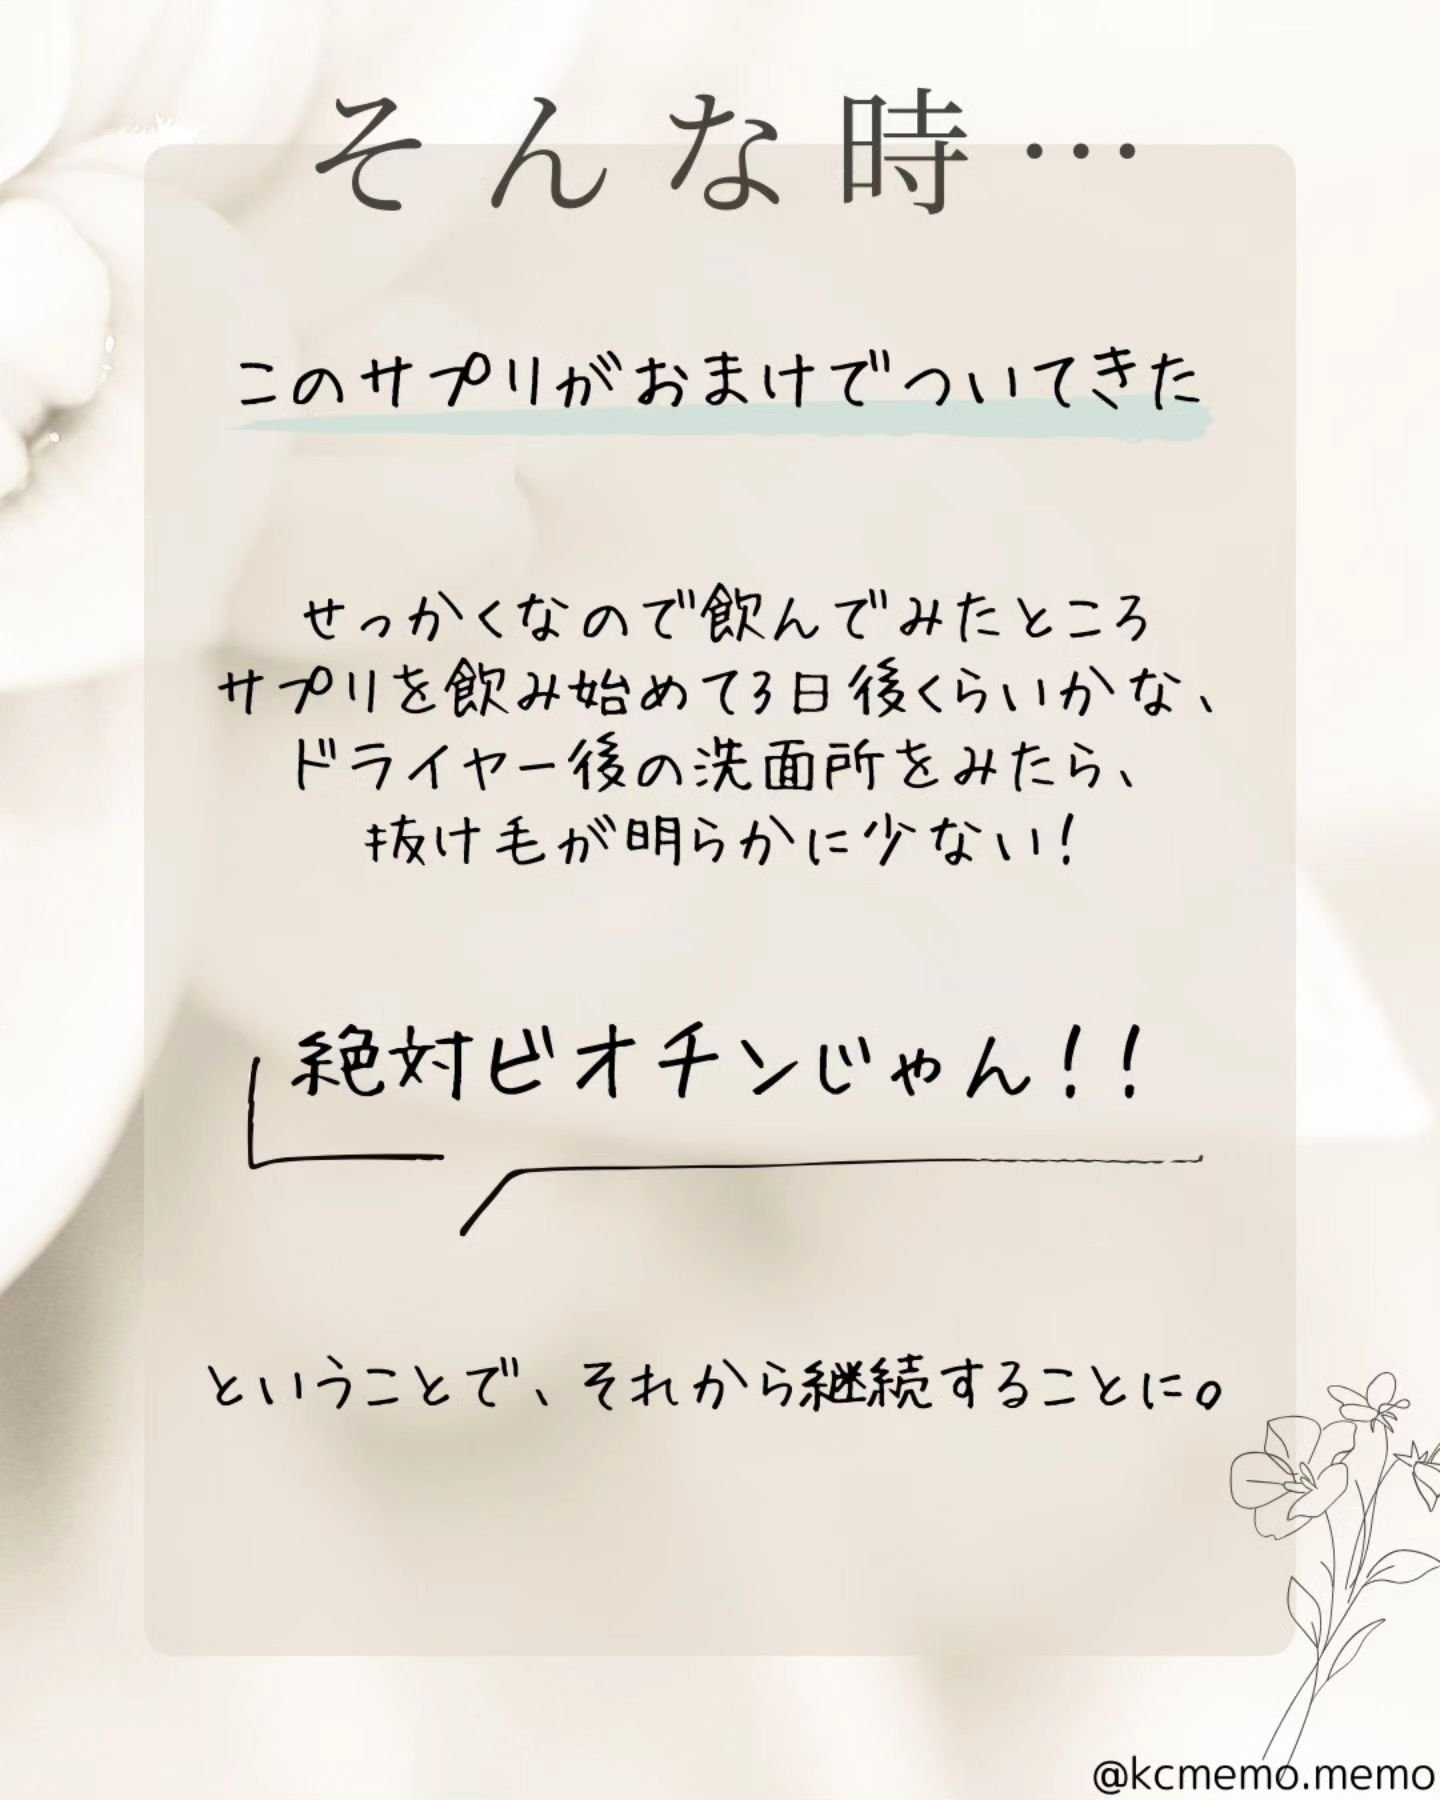 そんな時…
このサプリがおまけでついてきた
せっかくなので飲んでみたところ
サプリを飲み始めて3日後くらいかな、
ドライヤー後の洗面所をみたら、
抜け毛が明らかに少ない！
絶対ビオチンじゃん！！
ということで、それから継続することに。
@kcmemo.memo